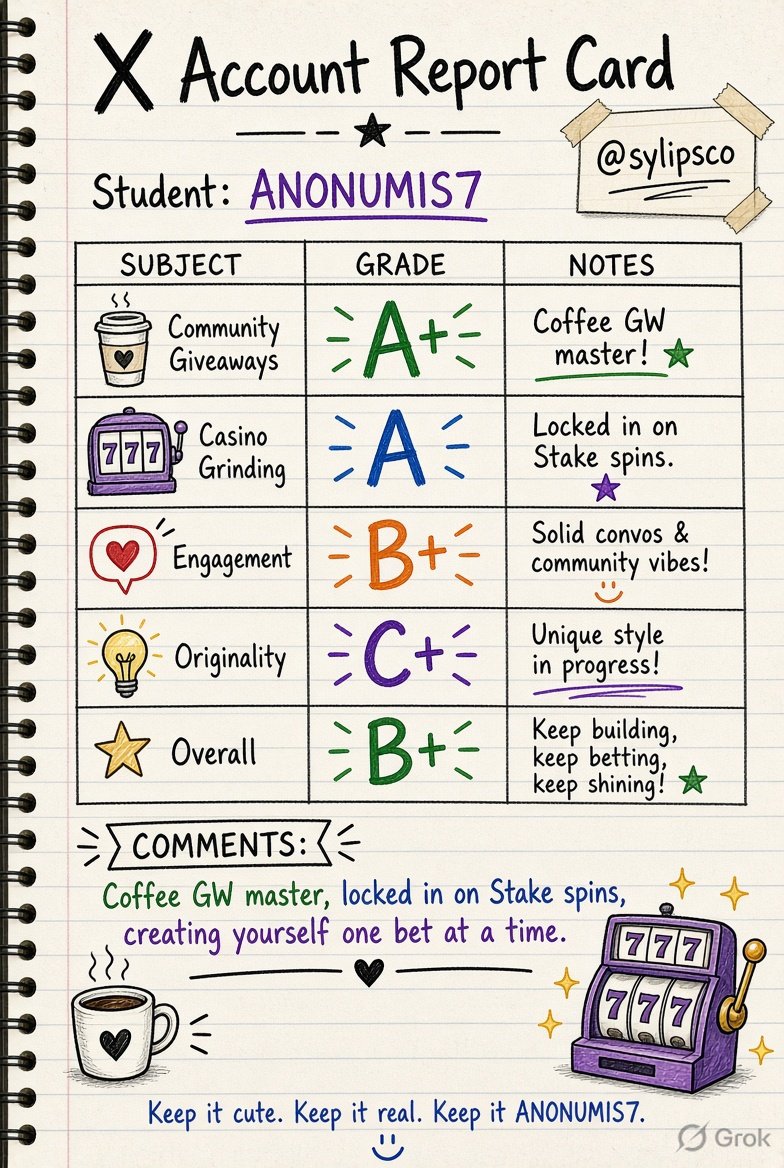 X Account Report Card
@sylipsco
Student: ANONUMIS7
SUBJECT GRADE NOTES
Community
Giveaways
A+
Coffee GW
master!
777
Casino
Grinding
A
Locked in on
Stake spins.
Engagement
B+
Solid convos &
community vibes!
Originality
C+
Unique style
in progress!
Overall
B+
Keep building,
keep betting,
keep shining!
COMMENTS:
Coffee GW master, locked in on Stake spins,
creating yourself one bet at a time.
777
777
Keep it cute. Keep it real. Keep it ANONUMIS7.
Grok